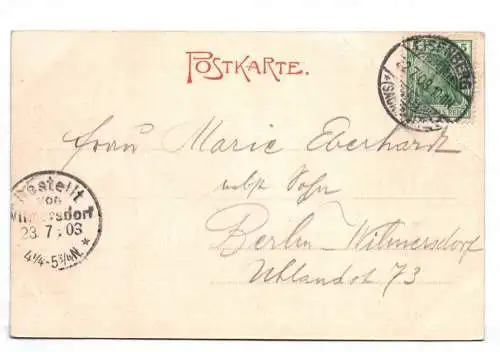 POSTKARTE.
EISENBERG
(S.-A.)
7.03.
Frau Marie Eberhardt
nebst Sohn
Berlin-Wilmersdorf
Uhlandst 73
Bestellt
von
Wilmersdorf
23.7.03
4¼-5¾N.